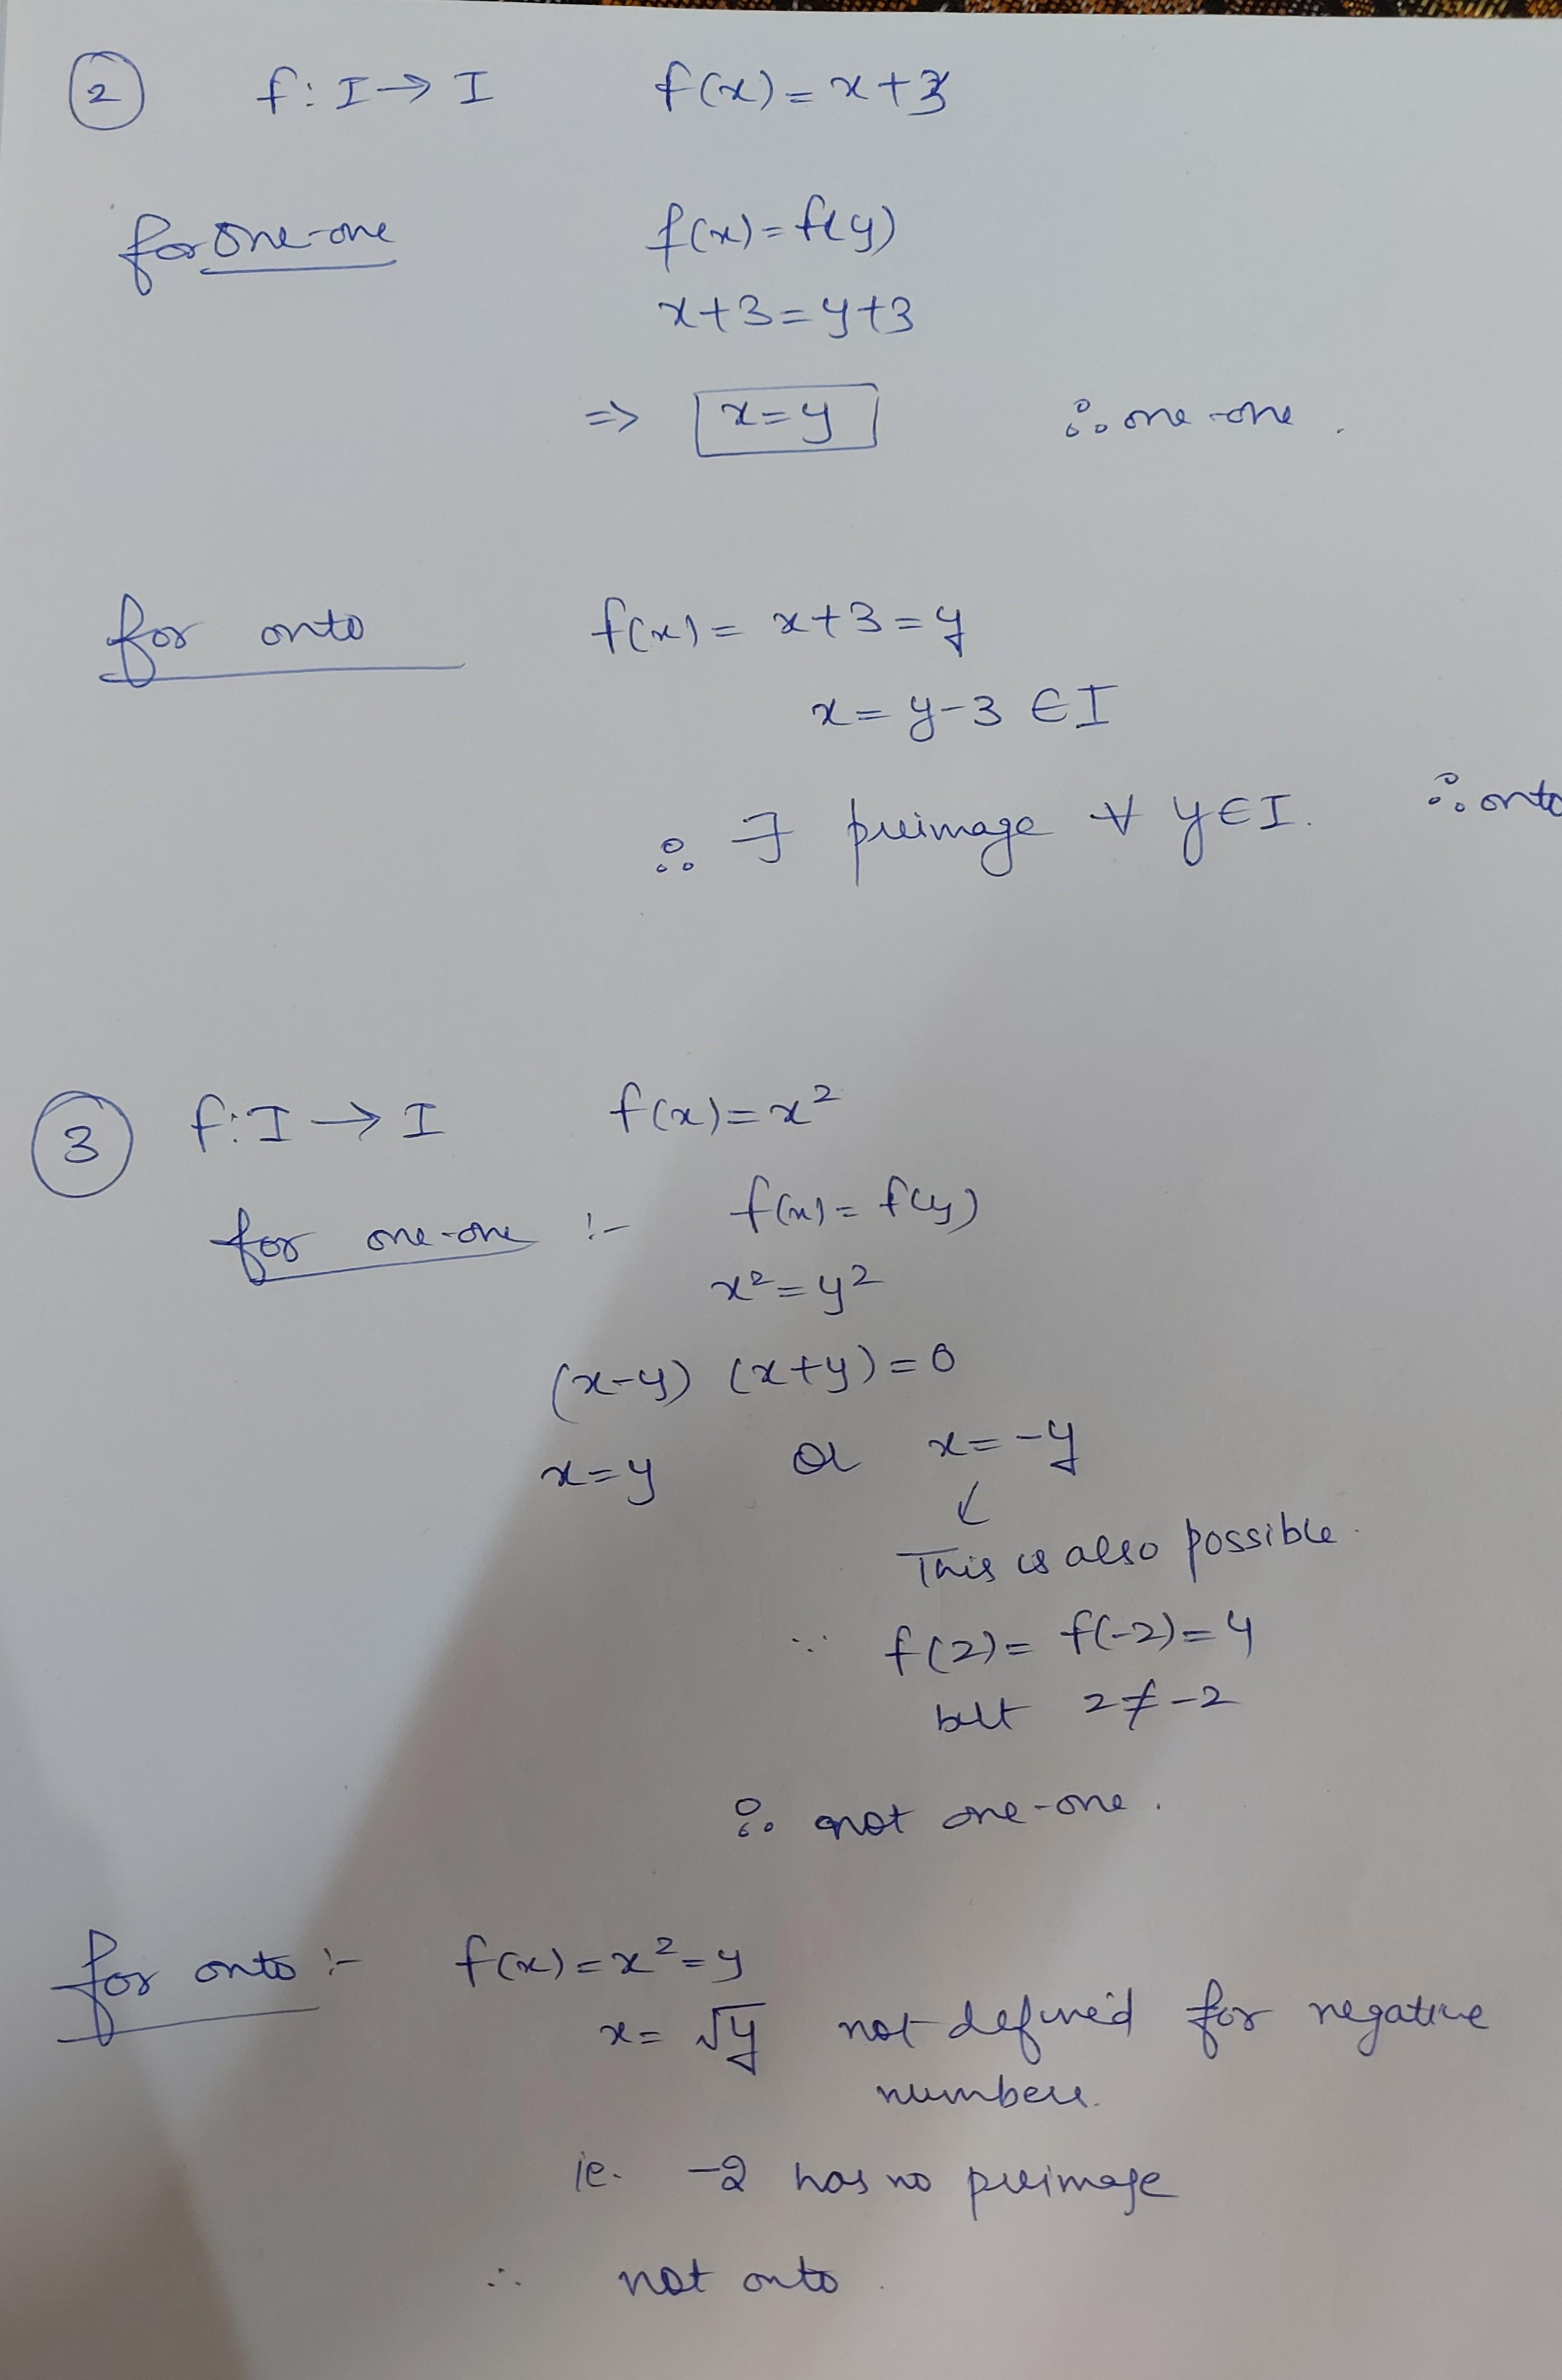 2 f: I → I f(x) = x+3
for one-one f(x) = f(y)
x+3 = y+3
⇒ x=y ∴ one-one.
for onto f(x) = x+3 = y
x = y-3 ∈ I
∴ ∃ preimage ∀ y ∈ I. ∴ onto
3 f: I → I f(x) = x²
for one-one :- f(x) = f(y)
x² = y²
(x-y) (x+y) = 0
x=y or x=-y
↙
This is also possible.
∵ f(2) = f(-2) = 4
but 2 ≠ -2
∴ not one-one.
for onto :- f(x) = x² = y
x = √y not defined for negative
numbers.
ie. -2 has no preimage
∴ not onto.